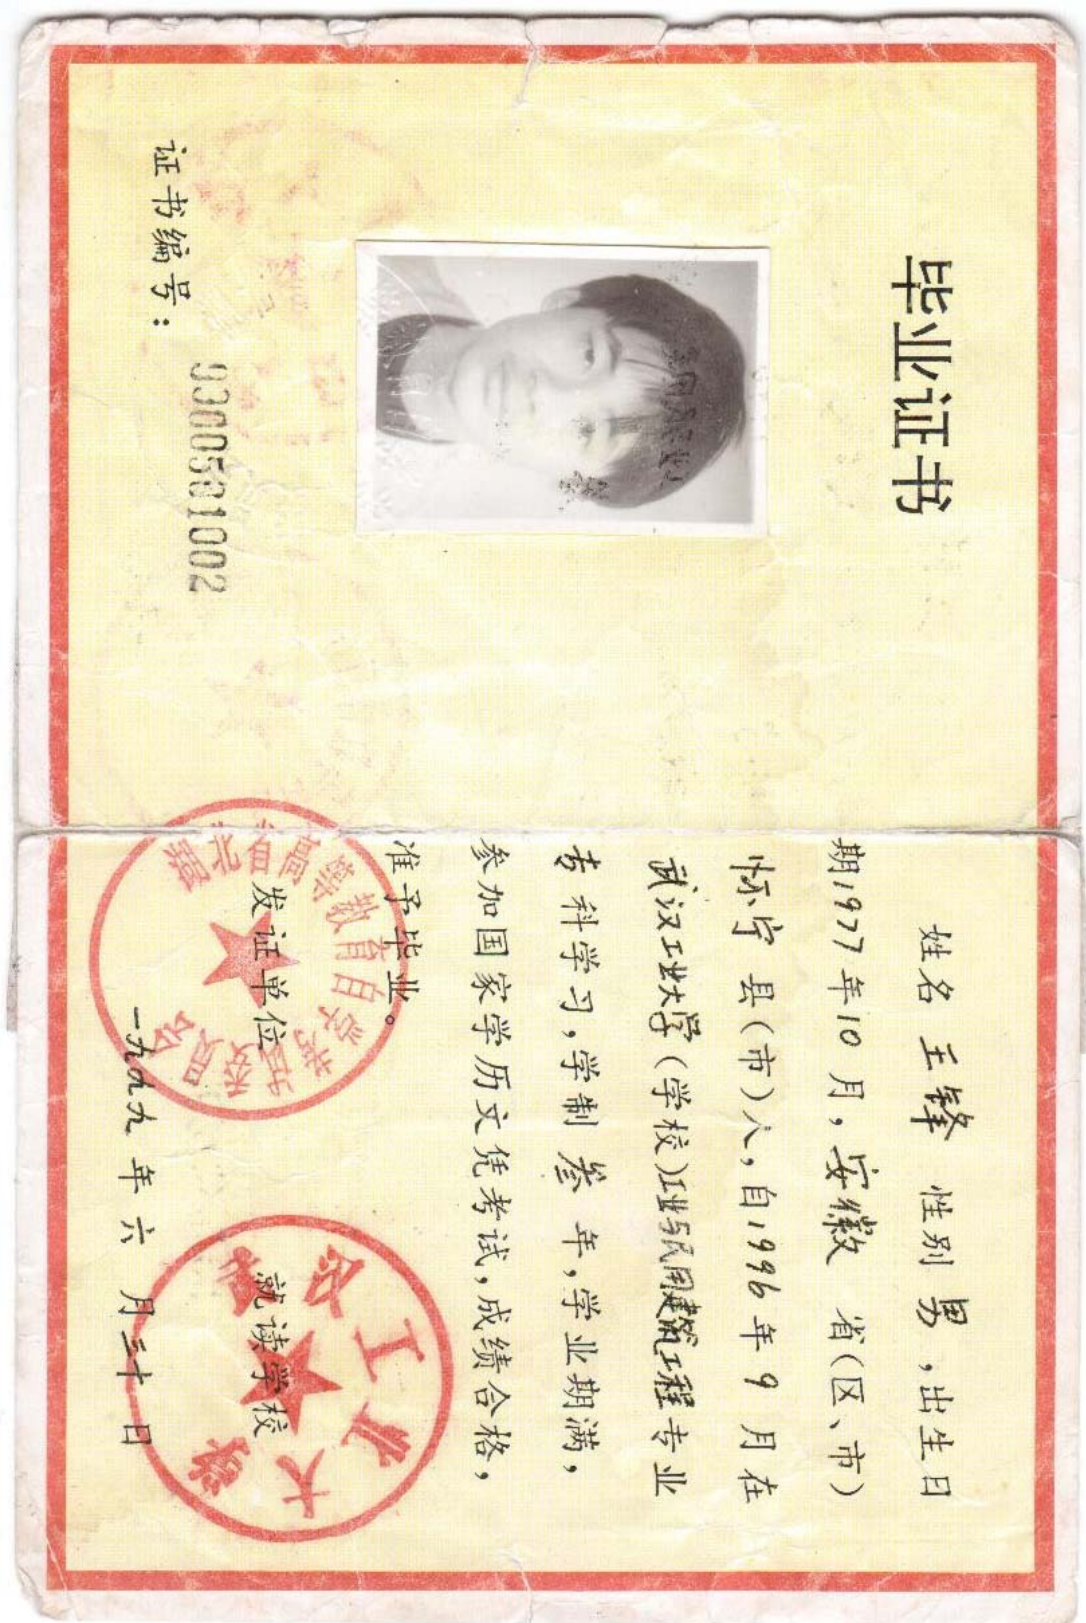 毕业证书
证书编号：
姓名 王锋 性别 男，出生日
期1977年10月，安徽 省(区、市)
怀宁 县(市)人，自1996年9月在
武汉工业大学(学校)工业与民用建筑工程专业
专科学习，学制 叁 年，学业期满，
参加国家学历文凭考试，成绩合格，
准予毕业。
发证单位 就读学校
一九九九年六月三十日
湖北省高等教育自学考试委员会
武汉工业大学